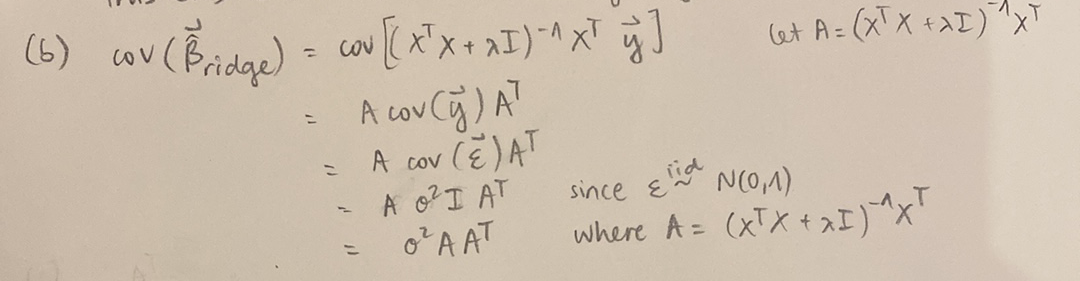 (b) cov(β̂⃗ridge) = cov[(XᵀX + λI)⁻¹Xᵀ y⃗] let A = (XᵀX + λI)⁻¹Xᵀ
= A cov(y⃗) Aᵀ
= A cov(ε⃗) Aᵀ
= A σ²I Aᵀ since ε iid~ N(0,1)
= σ² A Aᵀ where A = (XᵀX + λI)⁻¹Xᵀ